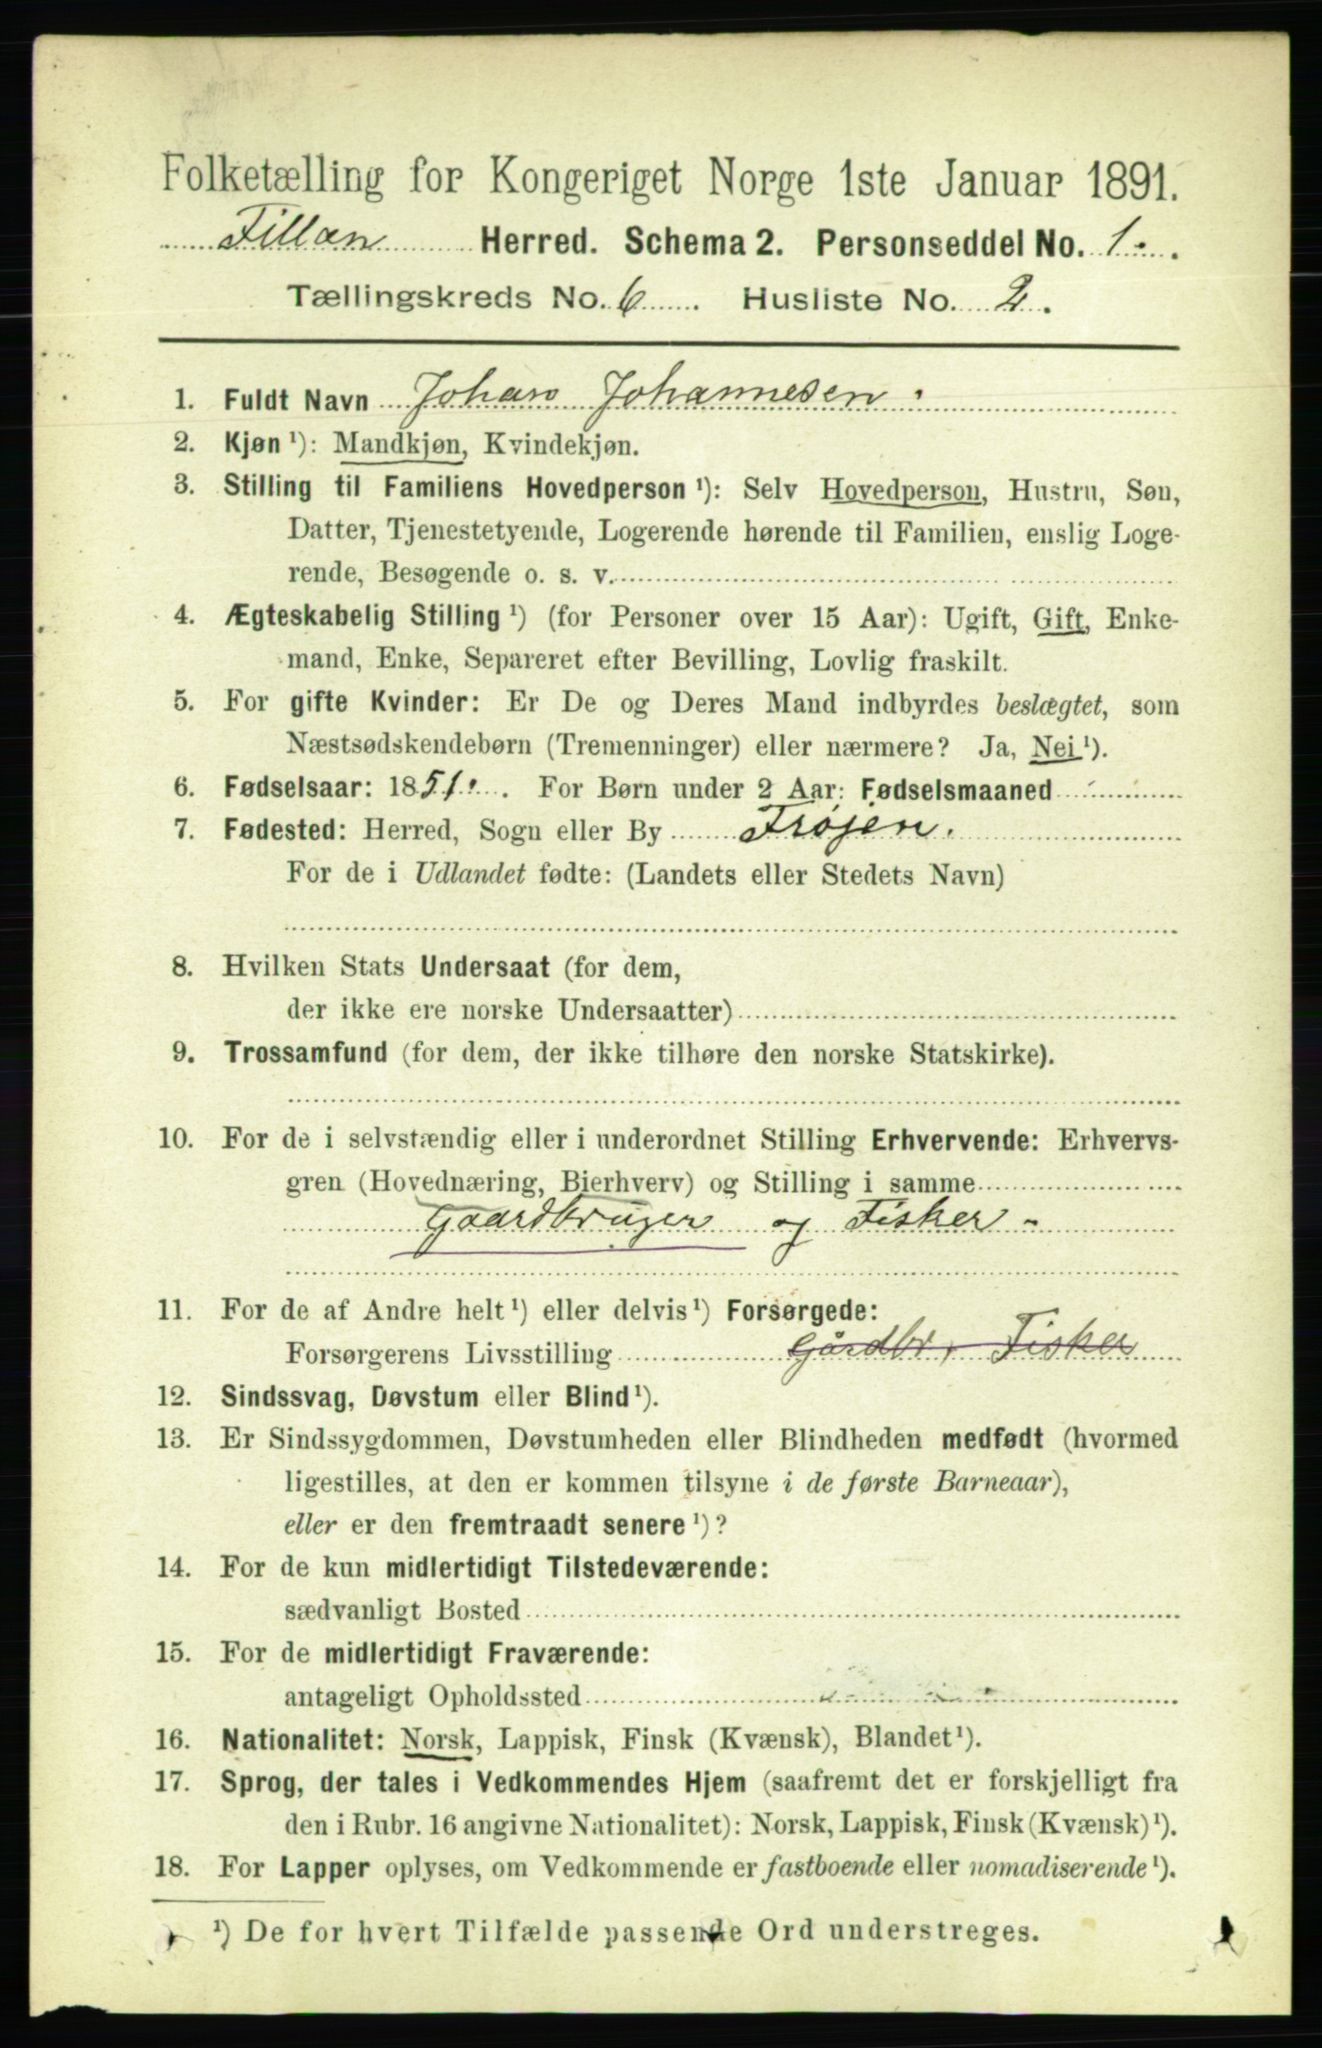 Folketælling for Kongeriget Norge 1ste Januar 1891.
Fillan Herred. Schema 2. Personseddel No. 1.
Tællingskreds No. 6. Husliste No. 2.
1. Fuldt Navn Johan Johannesen
2. Kjøn ¹): Mandkjøn, Kvindekjøn.
3. Stilling til Familiens Hovedperson ¹): Selv Hovedperson, Hustru, Søn,
Datter, Tjenestetyende, Logerende hørende til Familien, enslig Loge-
rende, Besøgende o. s. v.
4. Ægteskabelig Stilling ¹) (for Personer over 15 Aar): Ugift, Gift, Enke-
mand, Enke, Separeret efter Bevilling, Lovlig fraskilt.
5. For gifte Kvinder: Er De og Deres Mand indbyrdes beslægtet, som
Næstsødskendebørn (Tremenninger) eller nærmere? Ja, Nei ¹).
6. Fødselsaar: 1851. For Børn under 2 Aar: Fødselsmaaned
7. Fødested: Herred, Sogn eller By Frøjen.
For de i Udlandet fødte: (Landets eller Stedets Navn)
8. Hvilken Stats Undersaat (for dem,
der ikke ere norske Undersaatter)
9. Trossamfund (for dem, der ikke tilhøre den norske Statskirke).
10. For de i selvstændig eller i underordnet Stilling Erhvervende: Erhvervs-
gren (Hovednæring, Bierhverv) og Stilling i samme
Gaardbruger og Fisker -
11. For de af Andre helt ¹) eller delvis ¹) Forsørgede:
Forsørgerens Livsstilling Gårdbr, Fisker
12. Sindssvag, Døvstum eller Blind ¹).
13. Er Sindssygdommen, Døvstumheden eller Blindheden medfødt (hvormed
ligestilles, at den er kommen tilsyne i de første Barneaar),
eller er den fremtraadt senere ¹)?
14. For de kun midlertidigt Tilstedeværende:
sædvanligt Bosted
15. For de midlertidigt Fraværende:
antageligt Opholdssted
16. Nationalitet: Norsk, Lappisk, Finsk (Kvænsk), Blandet ¹).
17. Sprog, der tales i Vedkommendes Hjem (saafremt det er forskjelligt fra
den i Rubr. 16 angivne Nationalitet): Norsk, Lappisk, Finsk (Kvænsk) ¹).
18. For Lapper oplyses, om Vedkommende er fastboende eller nomadiserende ¹).
¹) De for hvert Tilfælde passende Ord understreges.